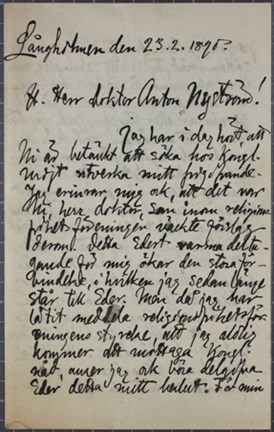 Långholmen den 23.2.1890.
H. Herr doktor Anton Nyström!
Jag har i dag hört, att
Ni är betänkt att söka hos Kongl.
Majt utverka mitt frigifvande.
Jag erinrar mig ock, att det var
Ni, herr doktor, som inom religions-
frihetsföreningen väckte förslag
derom. Detta Edert varma delta-
gande för mig ökar den stora för-
bindelse, i hvilken jag sedan länge
står till Eder. Men då jag har
låtit meddela religionsfrihetsför-
eningens styrelse, att jag aldrig
kommer att mottaga Kongl.
nåd, anser jag ock böra delgifva
Eder detta mitt beslut. För min